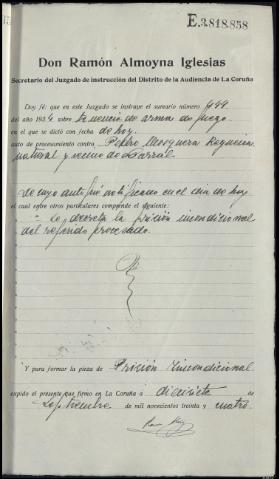 E.3.848.858
Don Ramón Almoyna Iglesias
Secretario del Juzgado de instrucción del Distrito de la Audiencia de La Coruña
Doy fé: que en este Juzgado se instruye el sumario número
del año 1934 sobre tenencia de arma de fuego
en el que se dictó con fecha de hoy.
auto de procesamiento contra Pedro Mosquera
natural y vecino de
De cuyo auto fué notificado en el día de hoy
el cual entre otros particulares comprende el siguiente:
Se decreta la prisión incondicional
del referido procesado.
Y para formar la pieza de Prisión Incondicional
expido el presente que firmo en La Coruña a diecisiete de
Septiembre de mil novecientos treinta y cuatro.